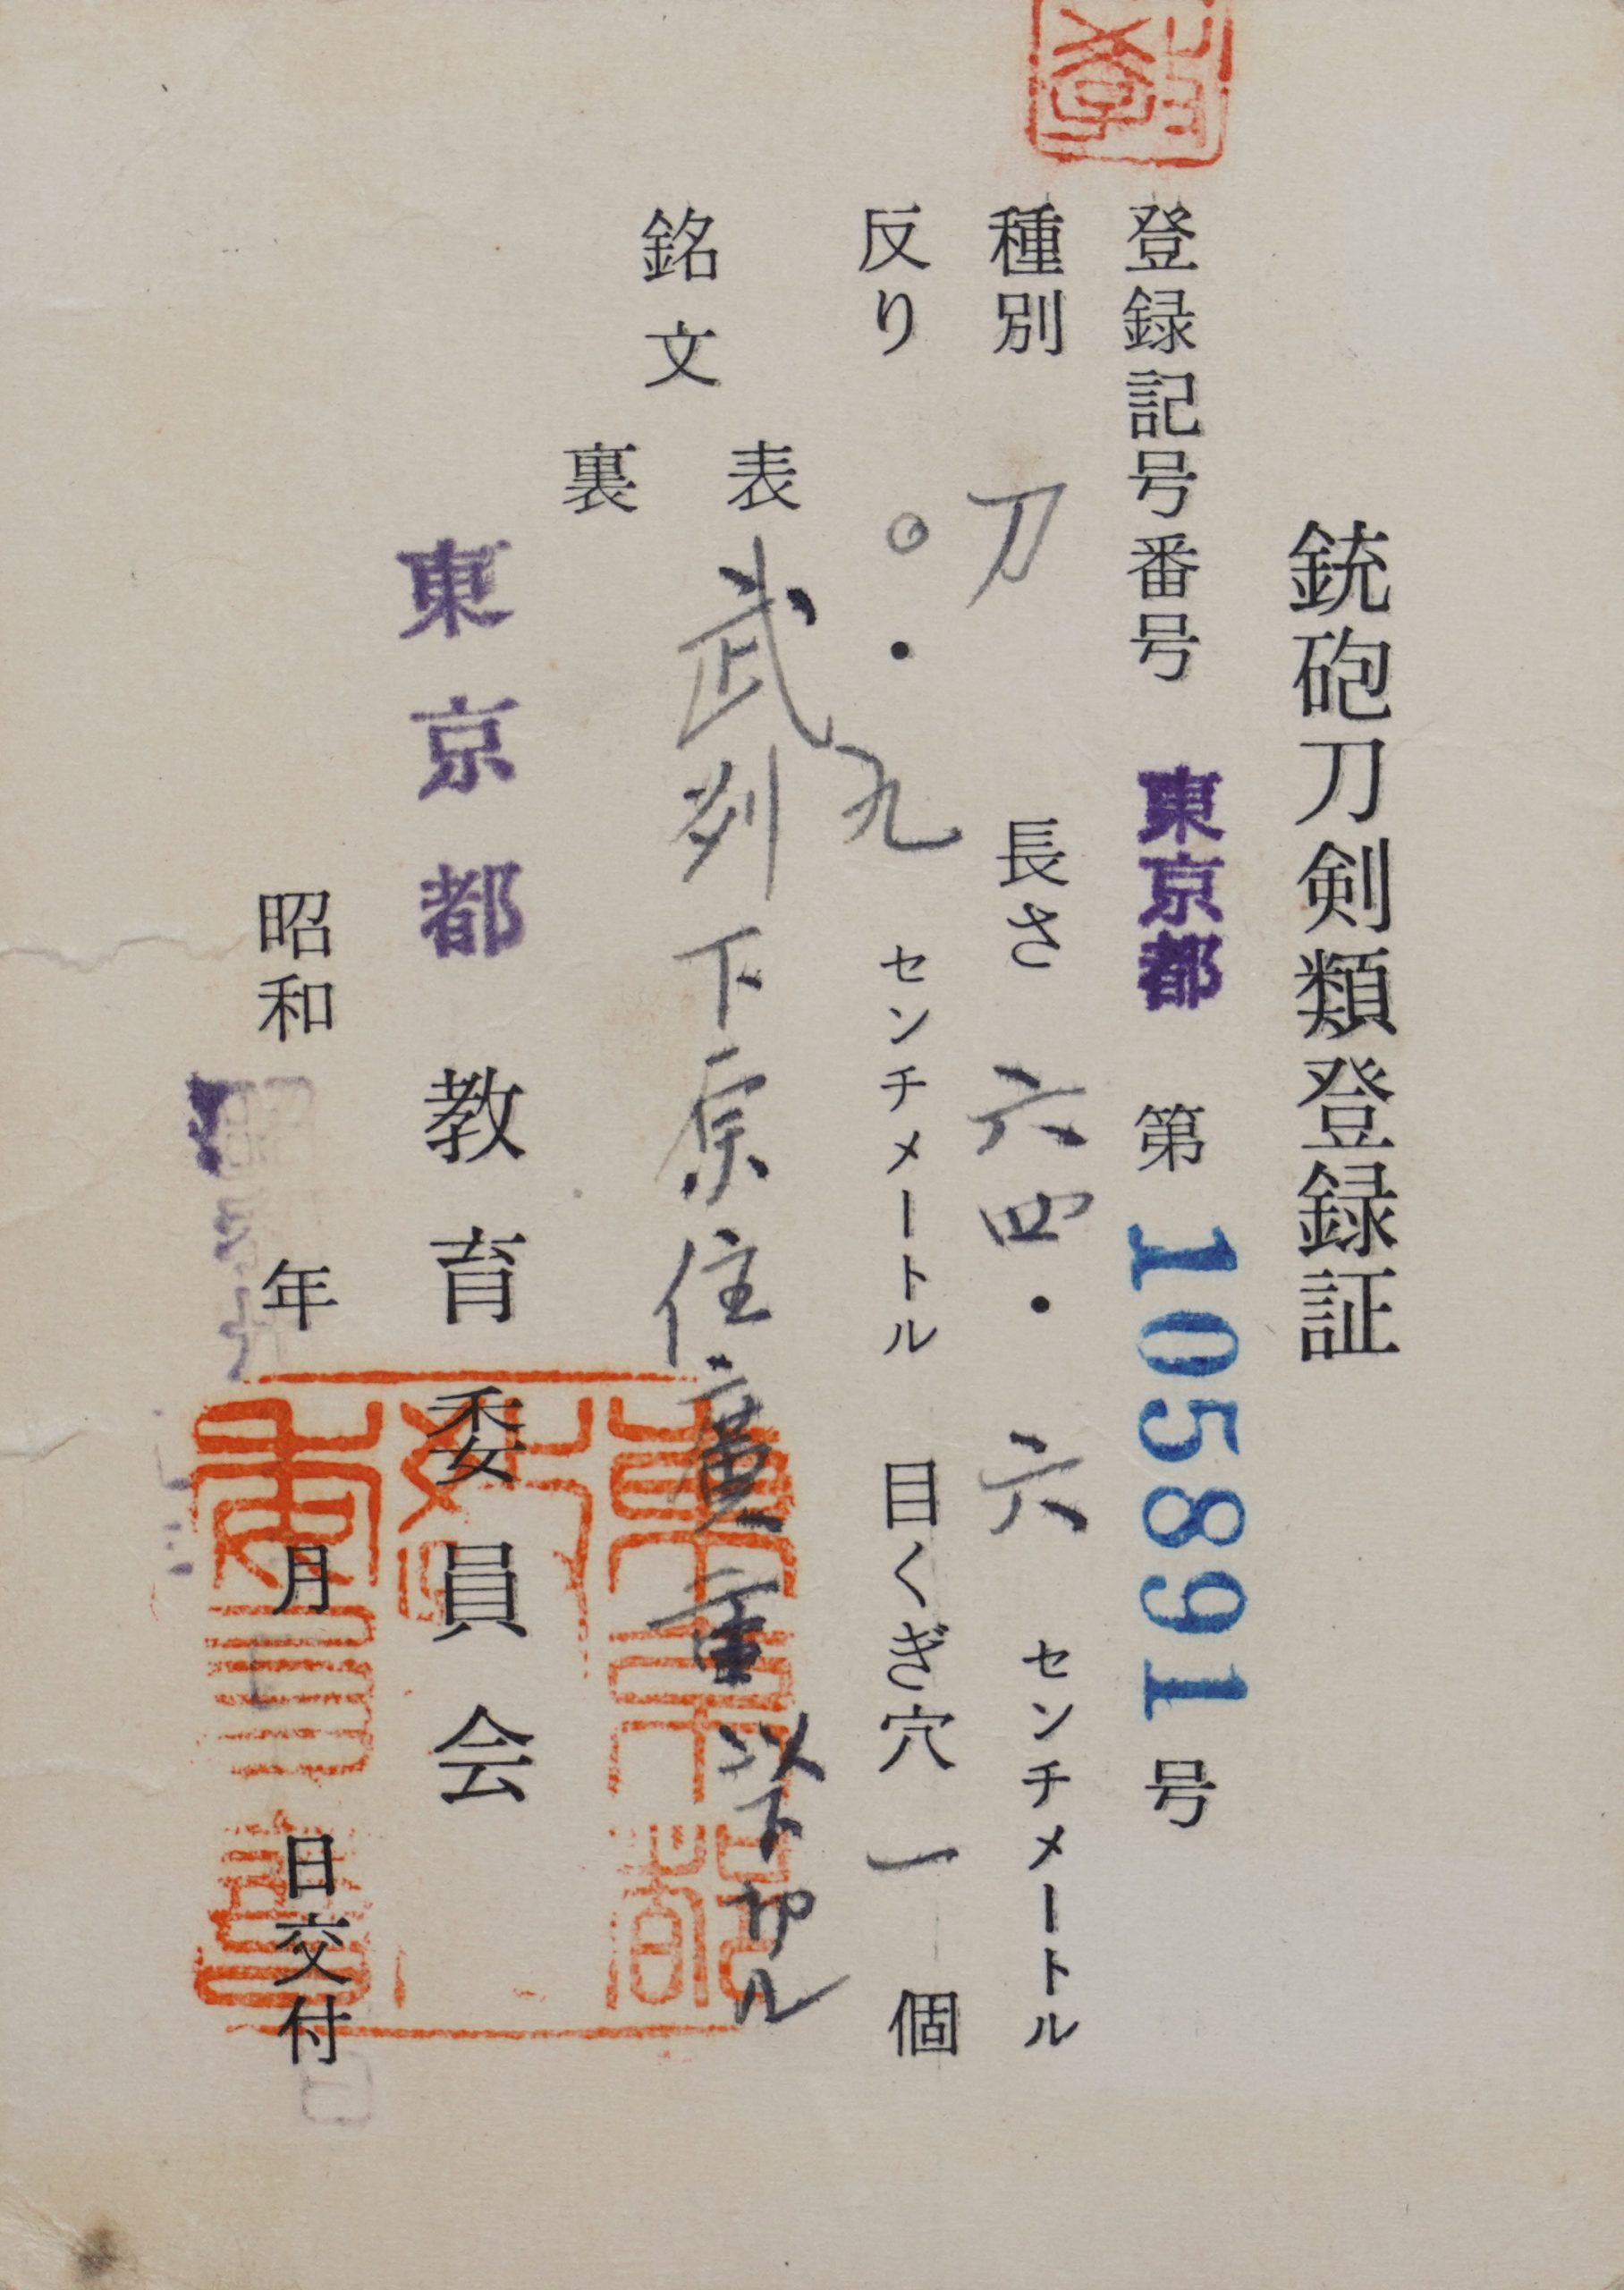 銃砲刀剣類登録証
登録記号番号 東京都 第 105891 号
種別 刀 長さ 六四・六 センチメートル
反り 〇・九 センチメートル 目くぎ穴 一 個
銘文
表 武刕下原住廣重以下切ル
裏
東京都 教育委員会
昭和 年 月 日交付